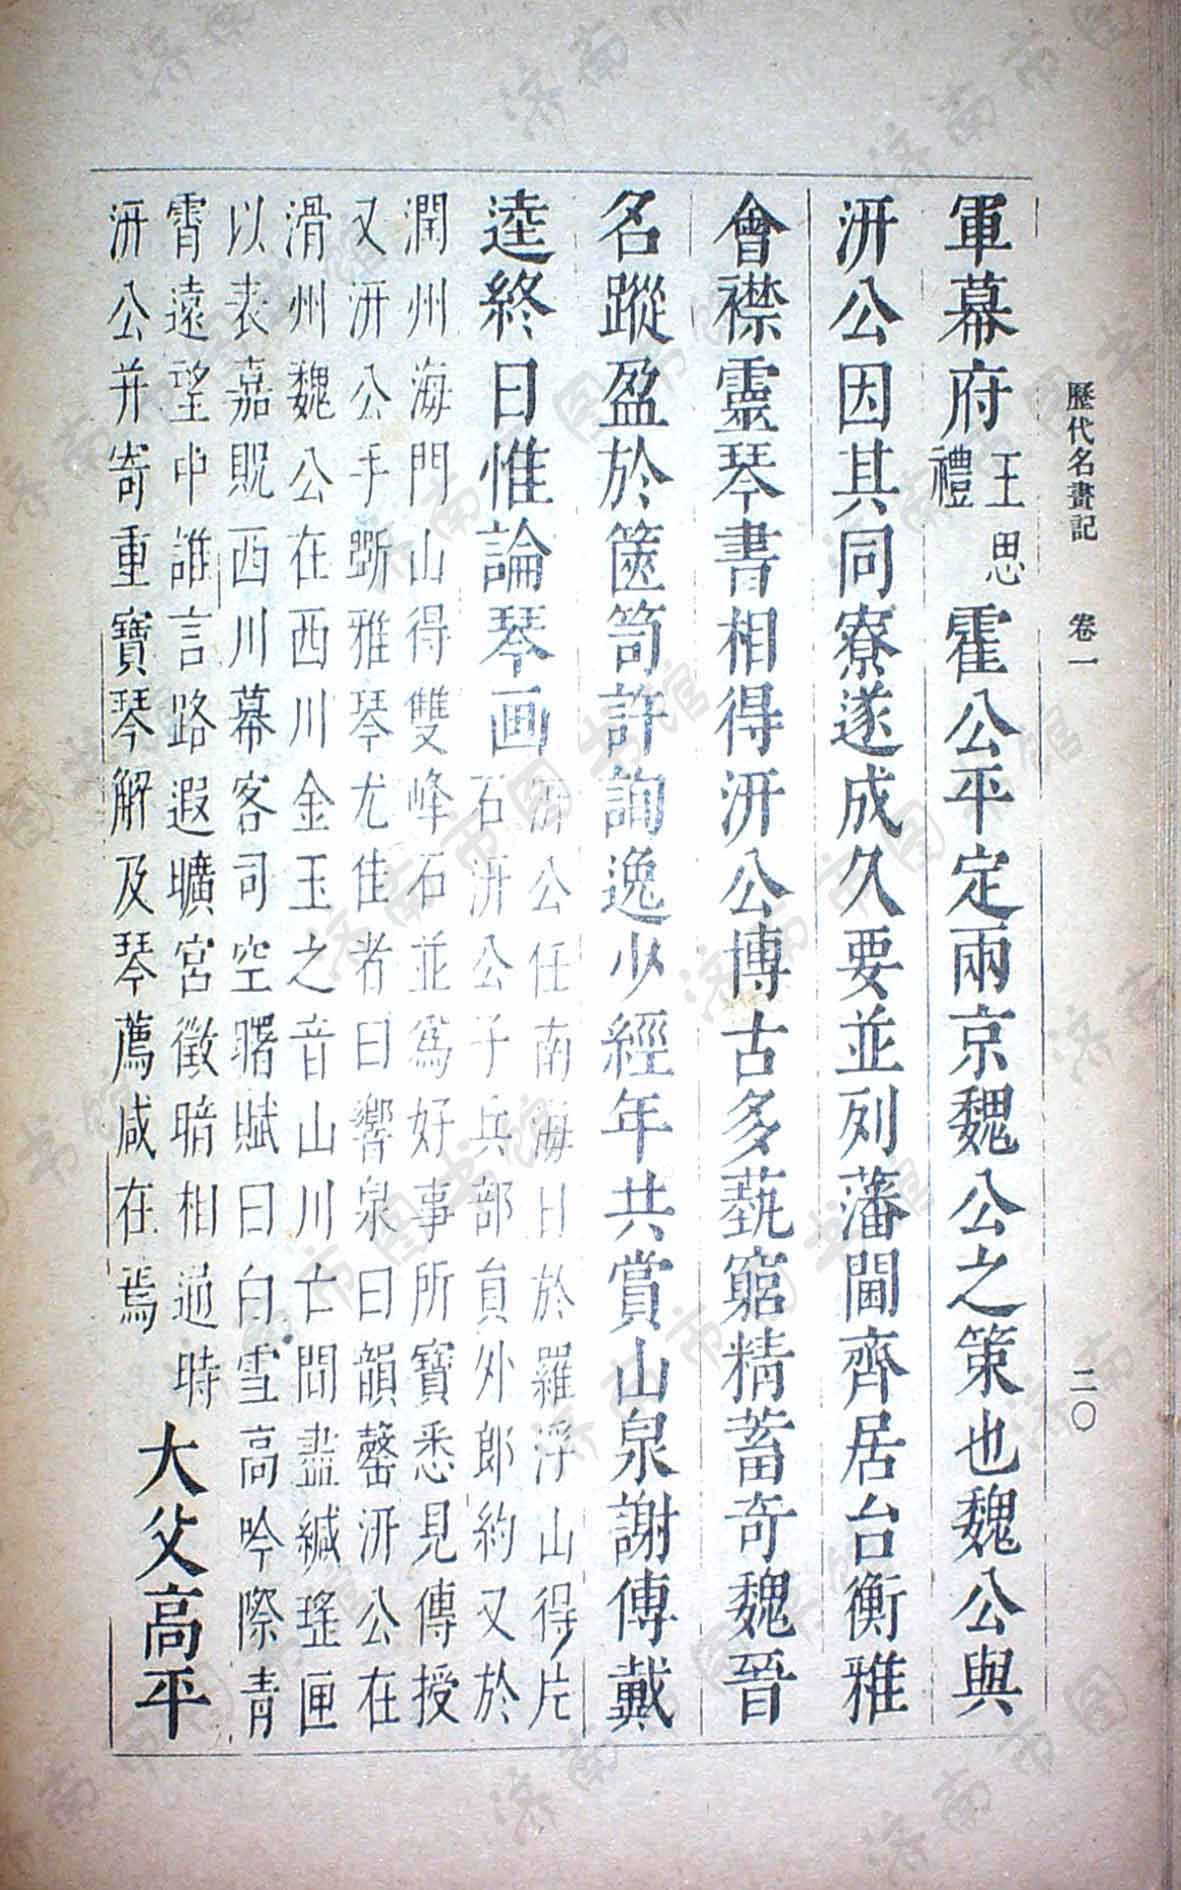 歷代名畫記 卷一 二〇
軍幕府王思禮霍公平定兩京魏公之策也魏公與
汧公因其同寮遂成久要並列藩閫齊居台衡雅
會襟靈琴書相得汧公博古多藝窮精蓄奇魏晉
名蹤盈於篋笥許詢逸少經年共賞山泉謝傅戴
逵終日惟論琴画
汧公任南海日於羅浮山得片
石汧公子兵部員外郎約又於
潤州海門山得雙峰石並爲好事所寶悉見傳授
又汧公手斲雅琴尤佳者曰響泉曰韻磬汧公在
滑州魏公在西川金玉之音山川亡間盡緘瑤匣
以表嘉貺西川幕客司空曙賦曰白雪高吟際青
霄遠望中誰言路遐曠宮徵暗相通時
汧公并寄重寶琴解及琴薦咸在焉
大父高平
济南市图书馆